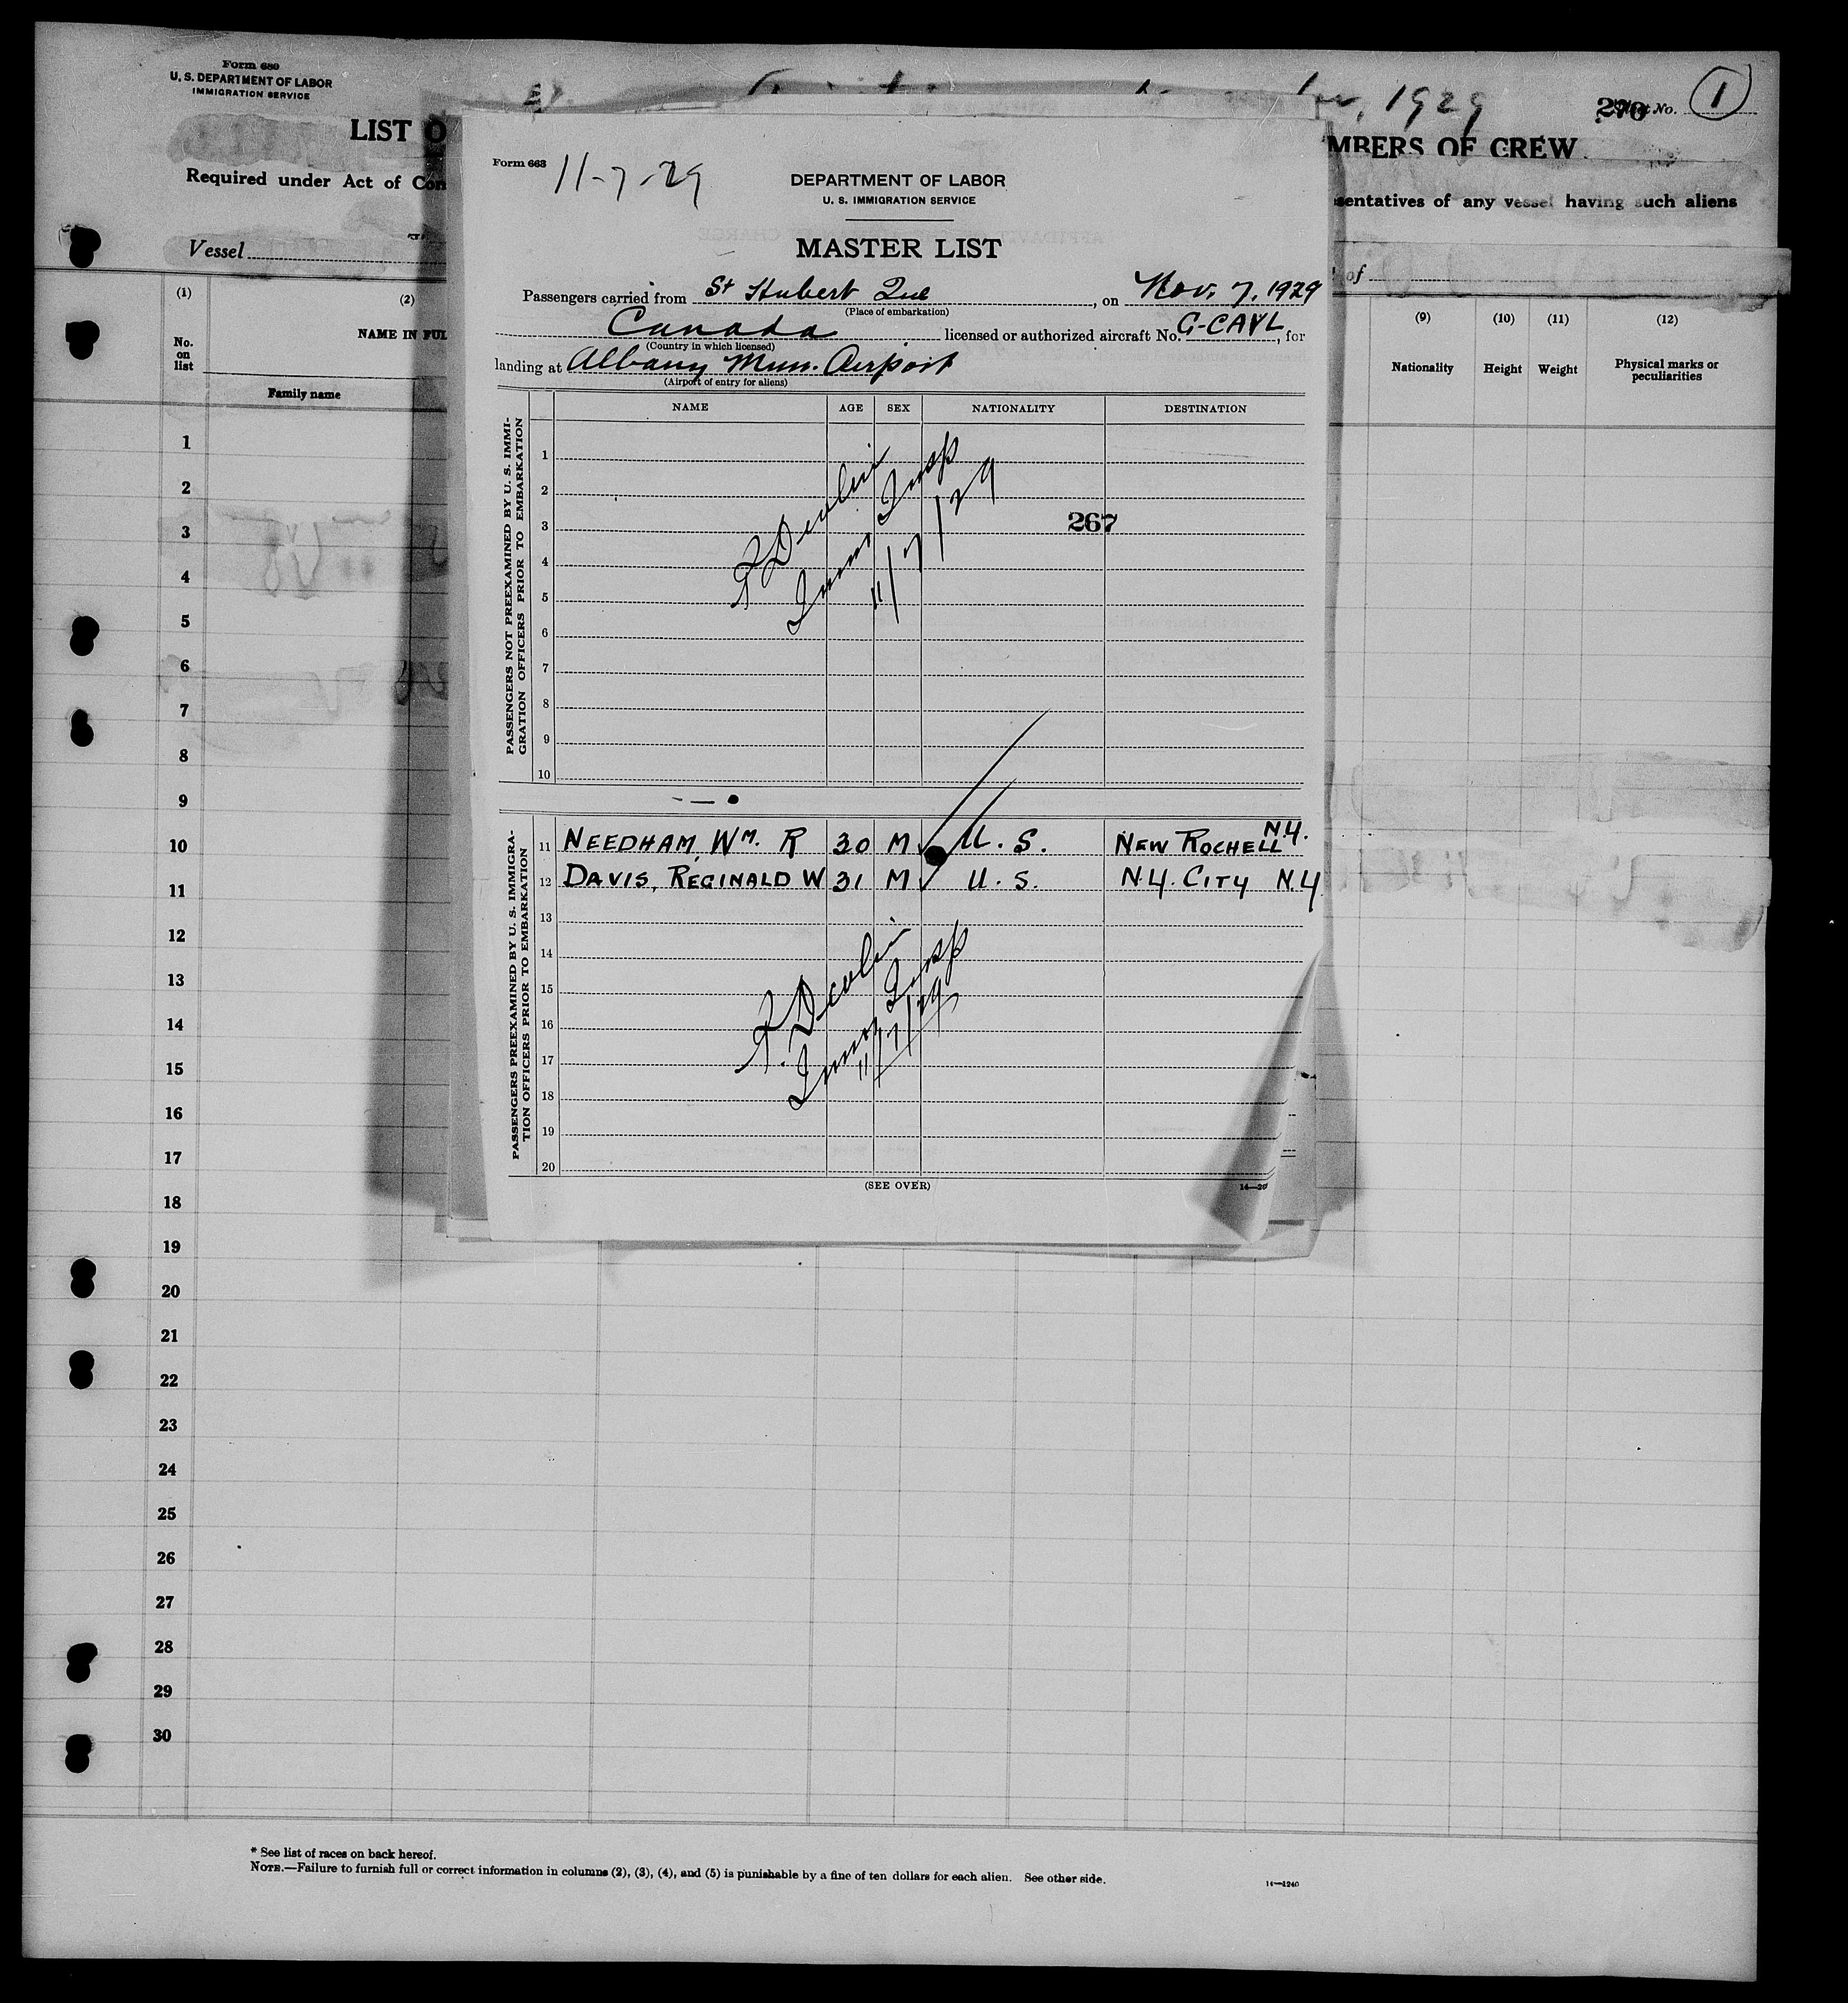 Form 680
U. S. DEPARTMENT OF LABOR
IMMIGRATION SERVICE
1929
270
Sheet No. 1
LIST O
MBERS OF CREW
Required under Act of Con
sentatives of any vessel having such aliens
Vessel
of
(1)
(2)
(9)
(10)
(11)
(12)
No. on list
NAME IN FUL
Family name
Nationality
Height
Weight
Physical marks or peculiarities
1
2
3
4
5
6
7
8
9
10
11
12
13
14
15
16
17
18
19
20
21
22
23
24
25
26
27
28
29
30
Form 663
11-7-29
DEPARTMENT OF LABOR
U. S. IMMIGRATION SERVICE
MASTER LIST
Passengers carried from St Hubert Que, on Nov. 7, 1929
(Place of embarkation)
Canada licensed or authorized aircraft No. G-CAYL, for
(Country in which licensed)
landing at Albany Mun. Airport
(Airport of entry for aliens)
NAME AGE SEX NATIONALITY DESTINATION
PASSENGERS NOT PREEXAMINED BY U. S. IMMI-
GRATION OFFICERS PRIOR TO EMBARKATION
1
2
3
4
5
6
7
8
9
10
Devlin
Immg Insp
11/7/29
267
PASSENGERS PREEXAMINED BY U. S. IMMIGRA-
TION OFFICERS PRIOR TO EMBARKATION
11 NEEDHAM, WM. R 30 M U. S. NEW ROCHELL N.Y.
12 DAVIS, REGINALD W 31 M U. S. N.Y. CITY N.Y
13
14
15
16
17
18
19
20
Devlin
Immg Insp
11/7/29
(SEE OVER)
* See list of races on back hereof.
NOTE.—Failure to furnish full or correct information in columns (2), (3), (4), and (5) is punishable by a fine of ten dollars for each alien. See other side.
14—1240